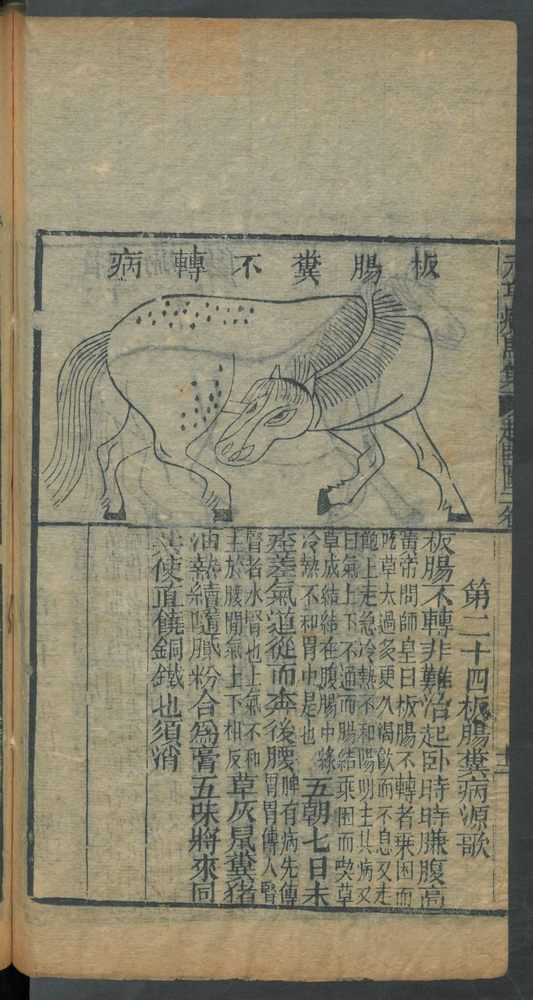 板腸糞不轉病
第二十四板腸糞病源歌
板腸不轉非難治起卧時時臁腹高
黃帝問師皇曰板腸不轉者乘困而
吃草太過多更久渴飲而不息又走
飽上走急冷熱不和陽明主其病又
曰氣上下不通而腸結乘困而喫草
草成結結在腹腸中緣
冷熱不和胃中是也
五朝七日未
痊差氣道從而奔後腰
脾有病先傳
胃胃傳入腎
腎者水腎也上氣不和
主於腰間氣上下相反
草灰鼠糞猪
油熱續隨膩粉合為膏五味將來同
共使直饒銅鐵也須消